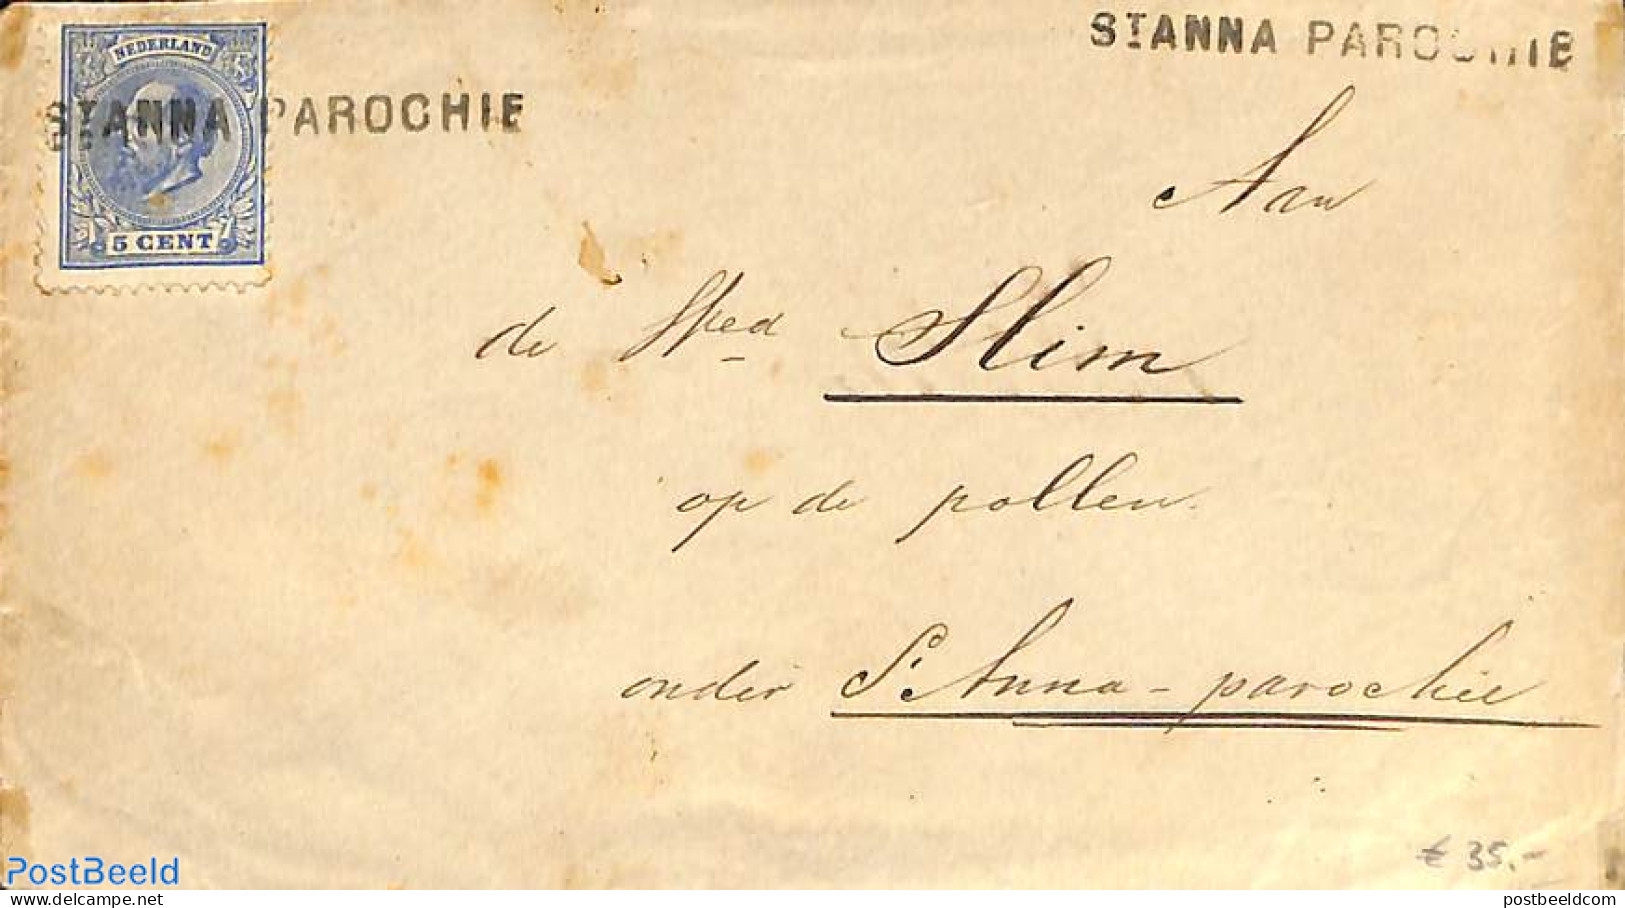 NEDERLAND
5 CENT
ST ANNA PAROCHIE
ST ANNA PAROCHIE
Aan
de Slim
op de pollen.
onder St. Anna-parochie
€ 35.-
PostBeeld
postbeeldcom